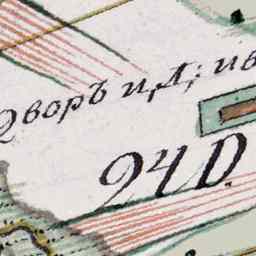 Дворъ и, Д; ив
94 D.